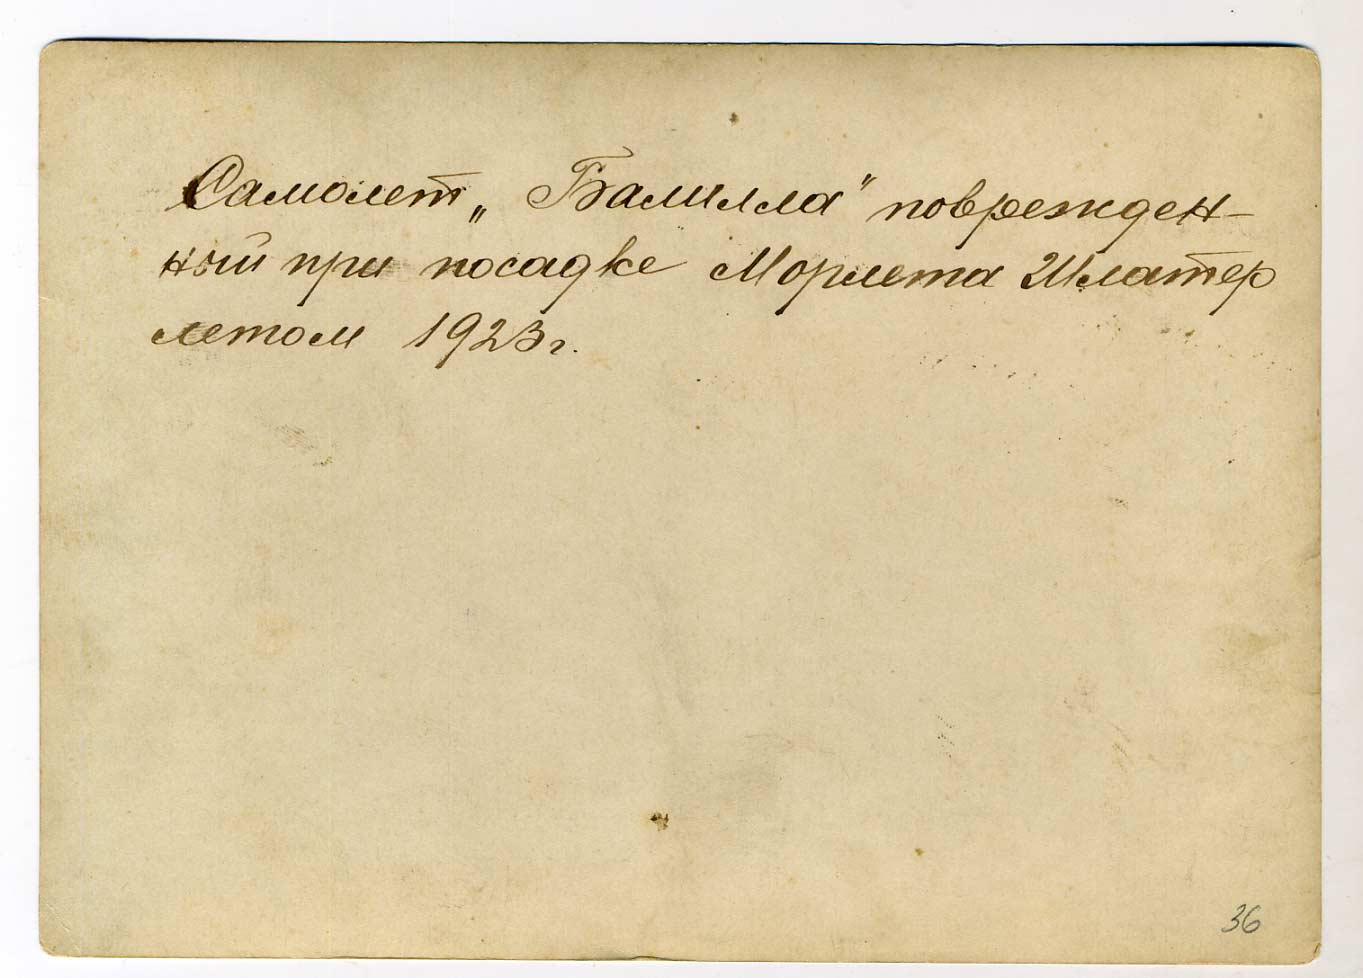 Самолет „Балилла" поврежден-
ный при посадке Морлета Шлатер
летом 1923 г.
36